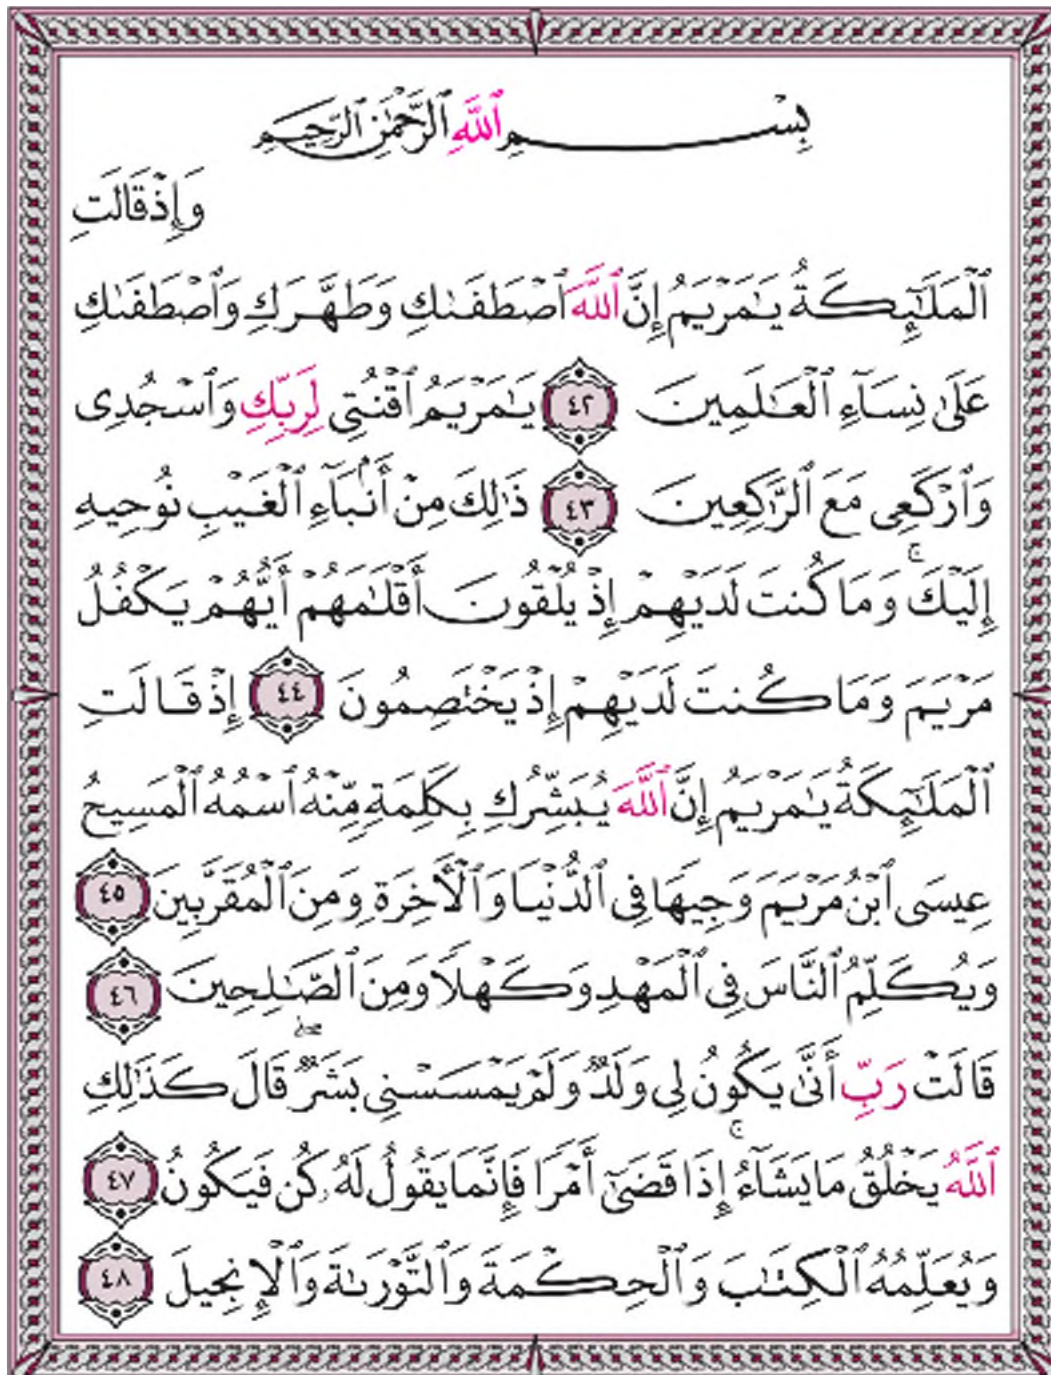 بِسْمِ ٱللَّهِ ٱلرَّحْمَٰنِ ٱلرَّحِيمِ
وَإِذْ قَالَتِ
ٱلْمَلَٰٓئِكَةُ يَٰمَرْيَمُ إِنَّ ٱللَّهَ ٱصْطَفَىٰكِ وَطَهَّرَكِ وَٱصْطَفَىٰكِ
عَلَىٰ نِسَآءِ ٱلْعَٰلَمِينَ ٤٢ يَٰمَرْيَمُ ٱقْنُتِى لِرَبِّكِ وَٱسْجُدِى
وَٱرْكَعِى مَعَ ٱلرَّٰكِعِينَ ٤٣ ذَٰلِكَ مِنْ أَنۢبَآءِ ٱلْغَيْبِ نُوحِيهِ
إِلَيْكَ ۚ وَمَا كُنتَ لَدَيْهِمْ إِذْ يُلْقُونَ أَقْلَٰمَهُمْ أَيُّهُمْ يَكْفُلُ
مَرْيَمَ وَمَا كُنتَ لَدَيْهِمْ إِذْ يَخْتَصِمُونَ ٤٤ إِذْ قَالَتِ
ٱلْمَلَٰٓئِكَةُ يَٰمَرْيَمُ إِنَّ ٱللَّهَ يُبَشِّرُكِ بِكَلِمَةٍ مِّنْهُ ٱسْمُهُ ٱلْمَسِيحُ
عِيسَى ٱبْنُ مَرْيَمَ وَجِيهًا فِى ٱلدُّنْيَا وَٱلْأَخِرَةِ وَمِنَ ٱلْمُقَرَّبِينَ ٤٥
وَيُكَلِّمُ ٱلنَّاسَ فِى ٱلْمَهْدِ وَكَهْلًا وَمِنَ ٱلصَّٰلِحِينَ ٤٦
قَالَتْ رَبِّ أَنَّىٰ يَكُونُ لِى وَلَدٌ وَلَمْ يَمْسَسْنِى بَشَرٌ ۖ قَالَ كَذَٰلِكِ
ٱللَّهُ يَخْلُقُ مَا يَشَآءُ ۚ إِذَا قَضَىٰٓ أَمْرًا فَإِنَّمَا يَقُولُ لَهُۥ كُن فَيَكُونُ ٤٧
وَيُعَلِّمُهُ ٱلْكِتَٰبَ وَٱلْحِكْمَةَ وَٱلتَّوْرَىٰةَ وَٱلْإِنجِيلَ ٤٨